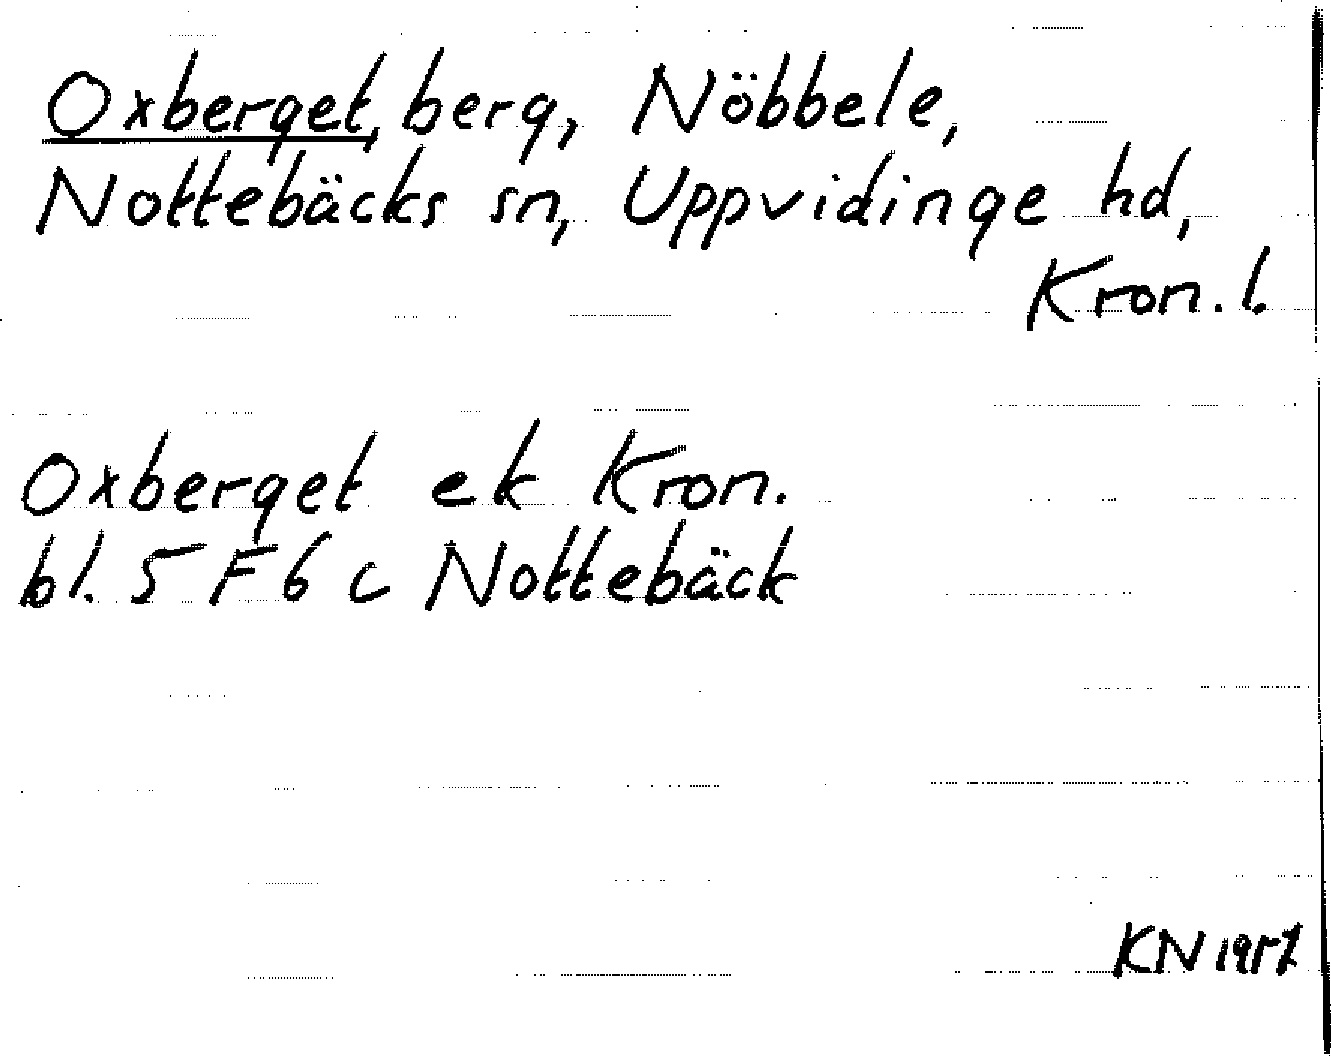 Oxberget, berg, Nöbbele,
Nottebäcks sn, Uppvidinge hd,
Kron. l.
Oxberget ek Kron.
bl. 5 F 6 c Nottebäck
KN 1957